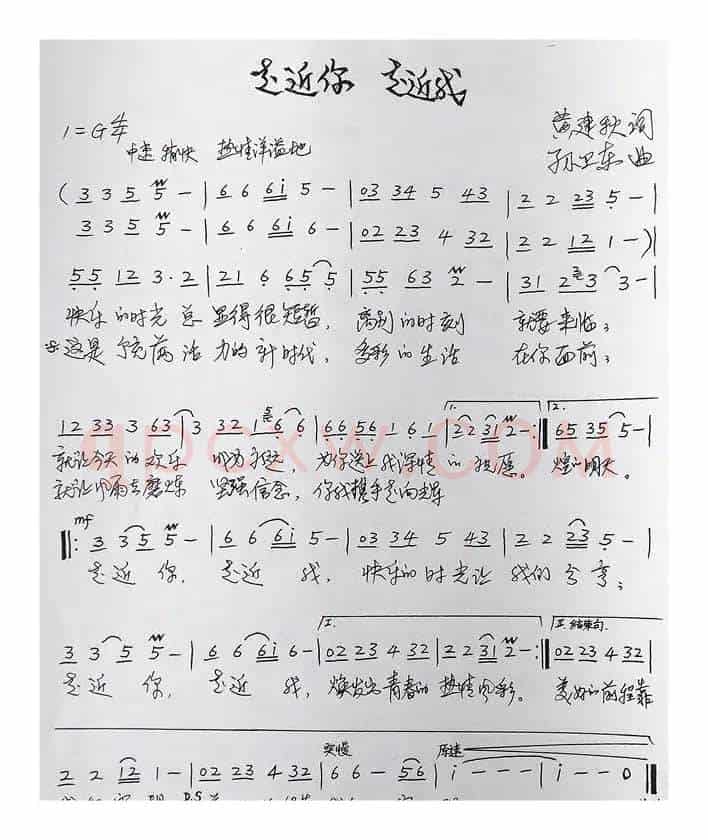 走近你 走近我
1=G 4/4
中速 愉快 热情洋溢地
黄建秋 词
孙卫东 曲
( 3 3 5 5 - | 6 6 6i 5 - | 03 34 5 43 | 2 2 23 5 - |
3 3 5 5 - | 6 6 6i 6 - | 02 23 4 32 | 2 2 12 1 - ) |
55 12 3·2 | 21 6 65 5 | 55 63 2 - | 31 2 3 3 - |
快乐的时光总 显得很短暂, 离别的时刻 就要来临;
※这是 充满活力的新时代, 多彩的生活 在你面前;
12 33 3 63 | 3 32 1 6 6 | 66 56 1 6 1 | 1. 22 31 2 - :|| 2. 65 35 5 - |
就让今天的欢乐 成为永远, 为你送上我深情的祝愿。 灿烂明天。
就让风雨去磨炼 坚强信念, 你我携手走向
mf
||: 3 3 5 5 - | 6 6 6i 5 - | 03 34 5 43 | 2 2 23 5 - |
走近你, 走近我, 快乐的时光让我们分享;
3 3 5 5 - | 6 6 6i 6 - | I. 02 23 4 32 | 2 2 31 2 - :|| II. 结束句. 02 23 4 32 |
走近你, 走近我, 焕发出青春的热情风彩。 美好的前程靠
突慢 原速
2 2 12 1 - | 02 23 4 32 | 6 6 - 56 | i - - - | i - - 0 ||
D.S
qpcxw.com